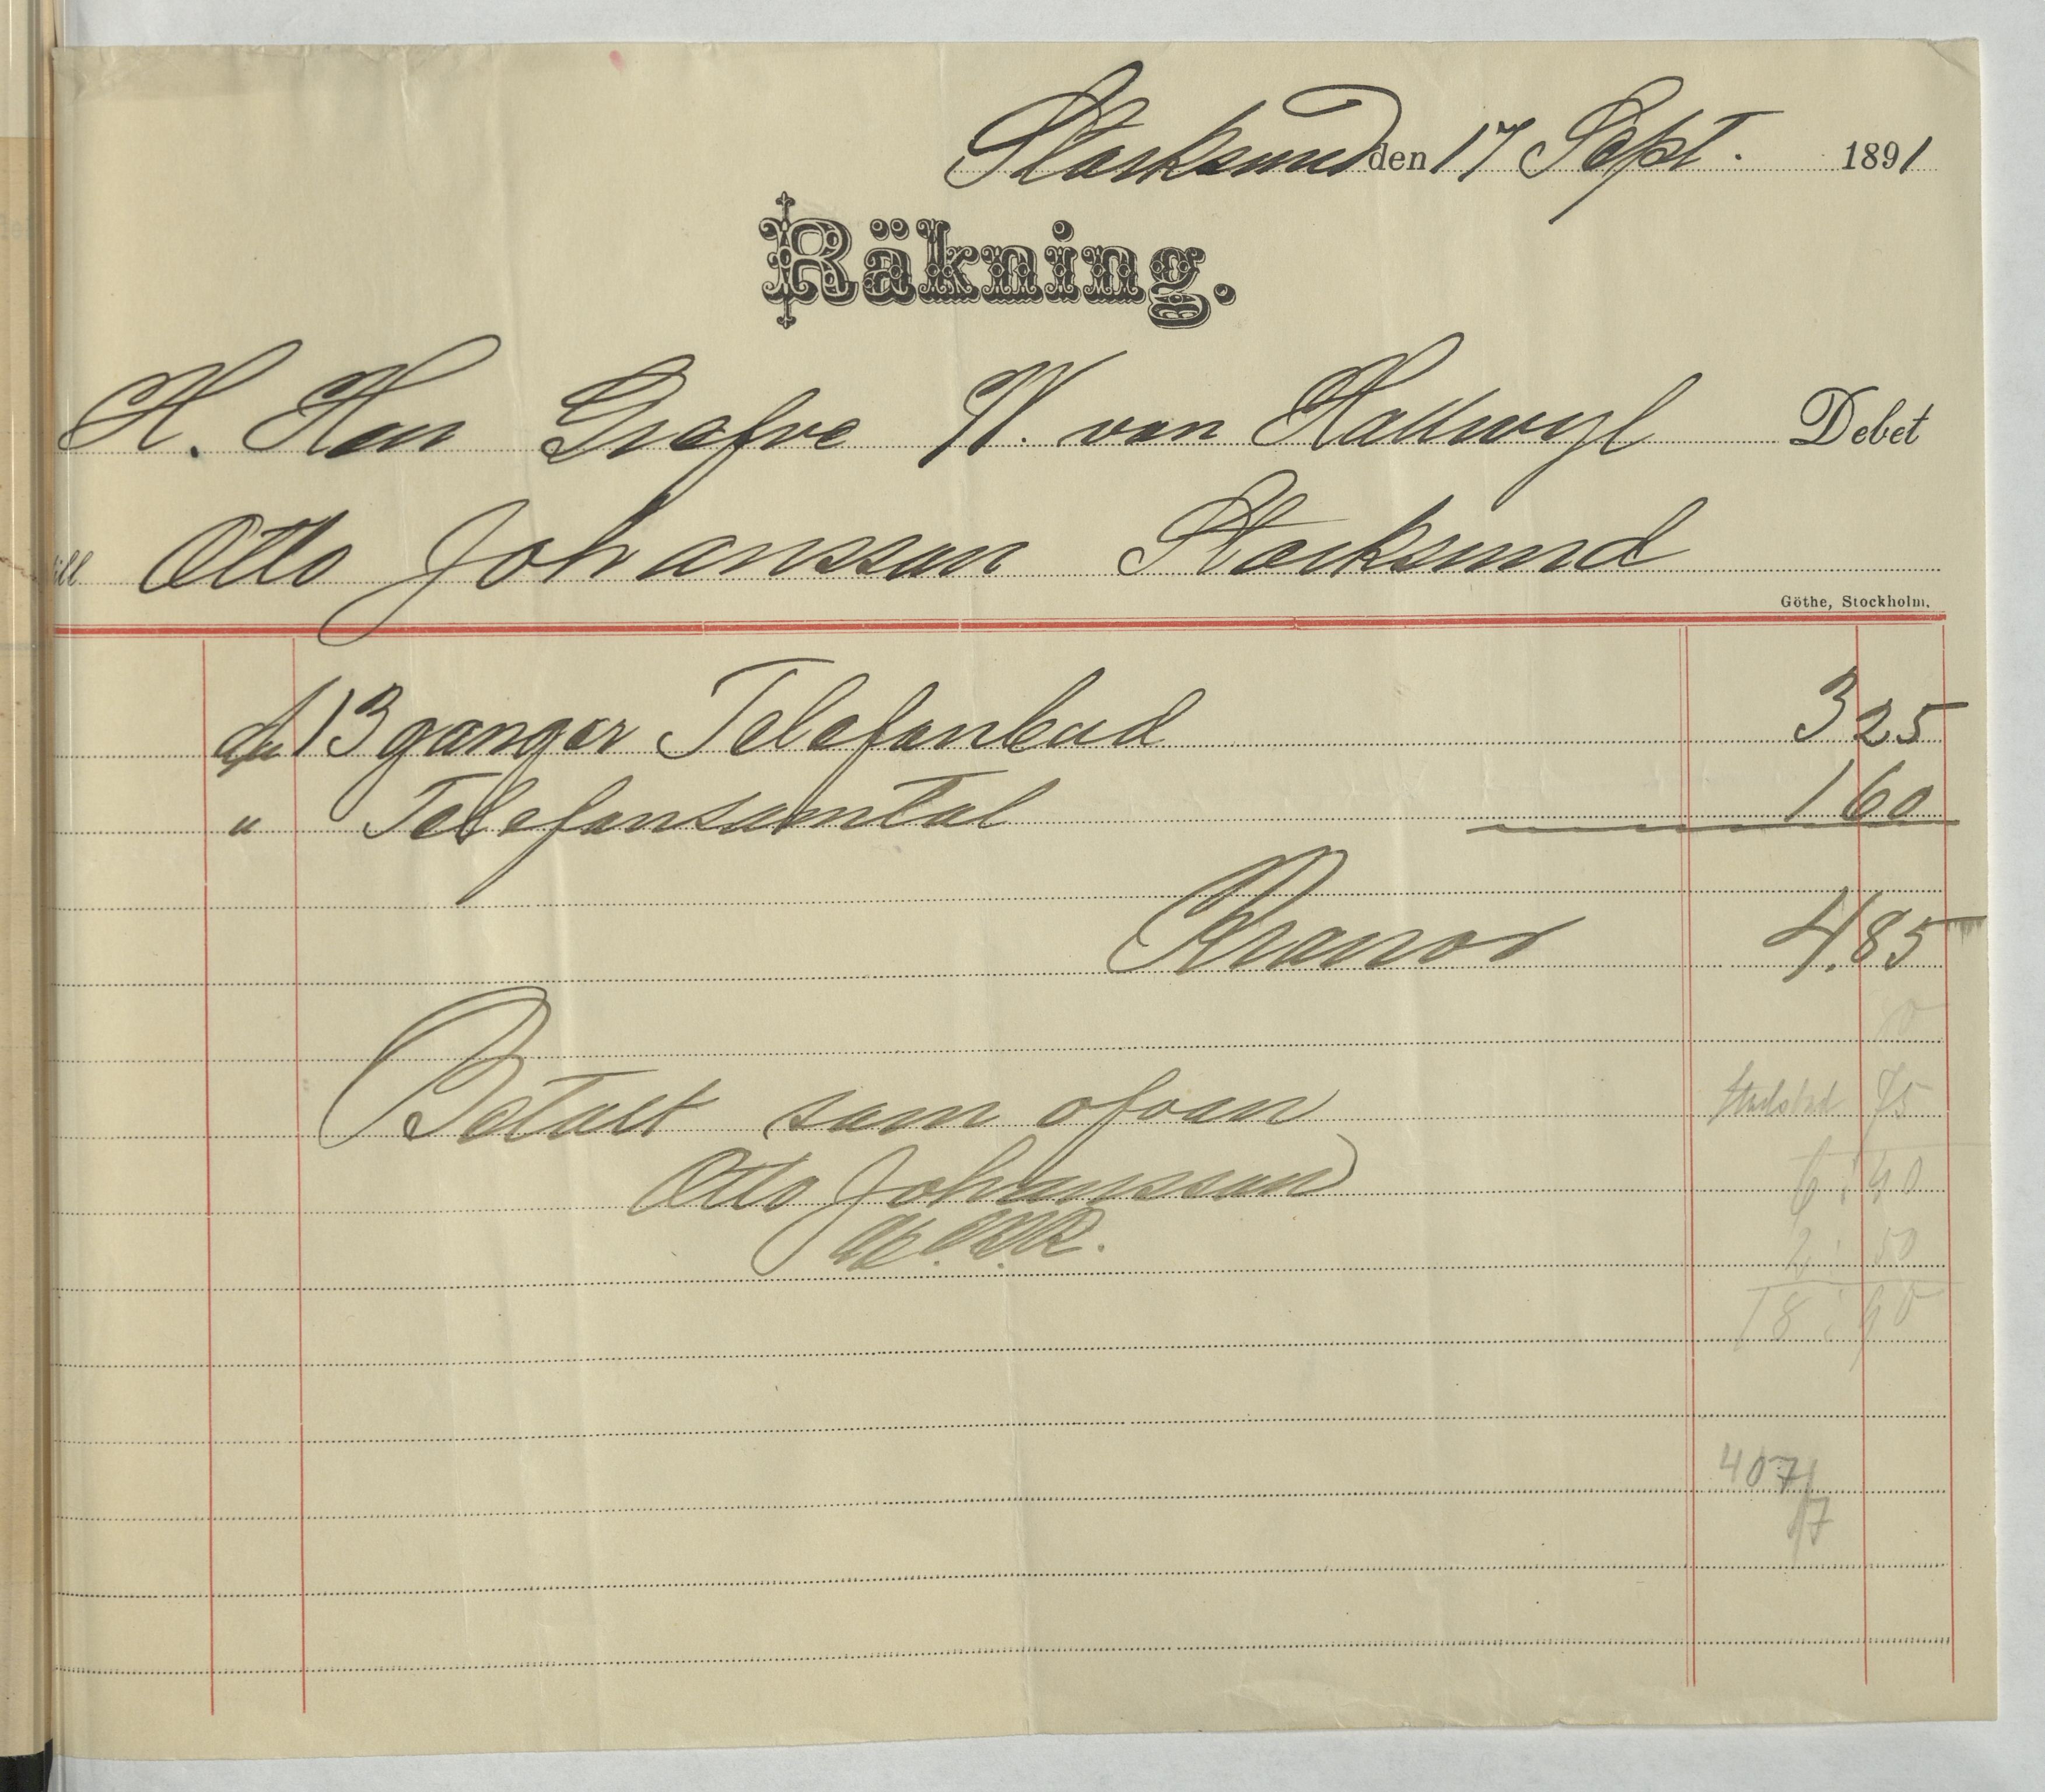 Stocksund den 17 Sept. 1891
Räkning.
H. Herr Grefve W. von Hallwyl Debet
till Otto Johansson Stocksund
Göthe, Stockholm.
13 gånger Telefonbud 3 25
" Telefonsamtal 1 60
Kronor 4.85
Betalt som ofvan
Otto Johansson
75
6:40
2:50
18:90
407/17